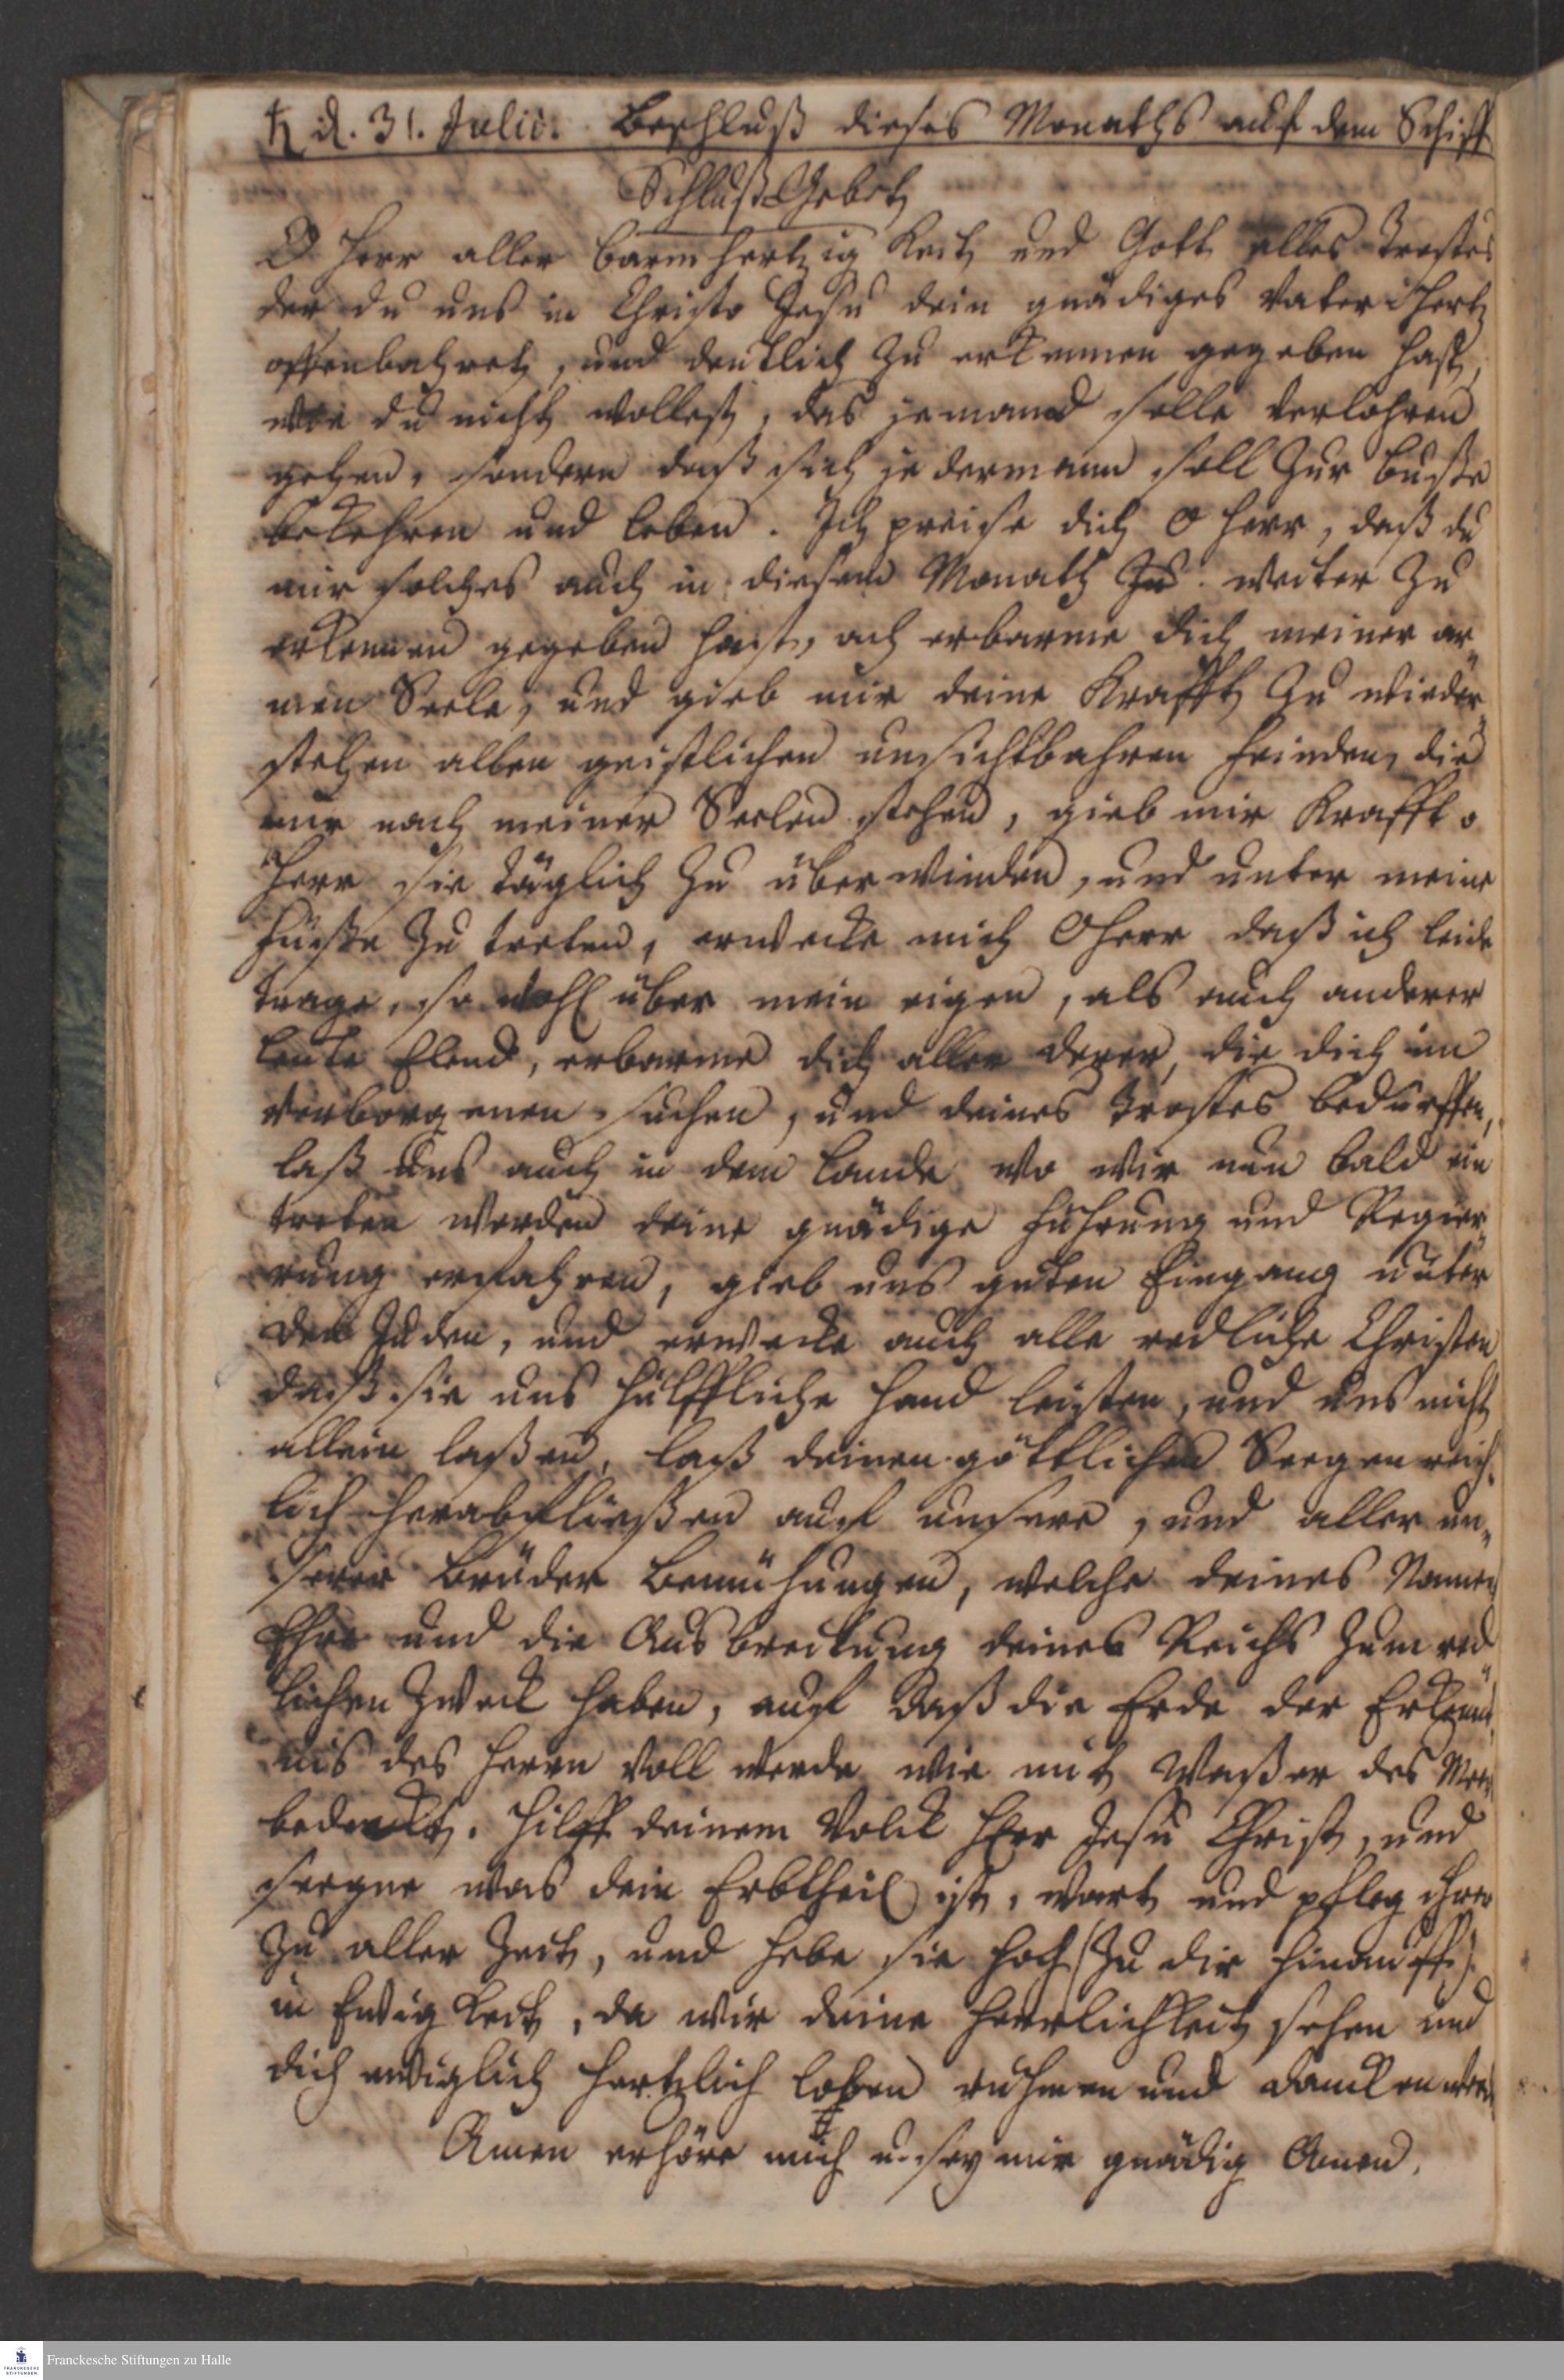 ♄ d. 31. Julii. Beschluß dieses Monaths auf dem Schiff
Schluß-Gebeth
O Herr aller Barmhertzigkeit und Gott alles Trostes
der du uns in Christo Jesu dein gnädiges Vater Hertz
offenbahret, und deutlich zu erkennen gegeben hast,
wie du nicht wollest, das jemand solle verlohren
gehen, sondern daß sich jederman soll zur Buße
bekehren und leben. Ich preise dich O Herr, daß du
mir solches auch in diesem Monath zu weiter zu
erkennen gegeben hast, ach erbarme dich meiner ar„
men Seele, und gieb mir deine Krafft zu wieder„
stehen allen geistlichen unsichtbahren Feinden, die
mir nach meiner Seelen stehen, gieb mir Krafft o
Herr sie täglich zu überwinden, und unter meine
Füße zu treten, erwecke mich O Herr daß ich leide
trage, so wohl über mein eigen, als auch anderer
Leute Elend, erbarme dich aller derer, die dich im
verborgenen suchen, und deines Trostes bedürffen,
laß uns auch in dem Lande wo wir nun bald ein
treten werden deine gnädige Führung und Regier„
rung erfahren, gieb uns guten Eingang unter
den Juden, und erwecke auch alle redliche Christen
daß sie uns hülffliche Hand leisten, und uns nicht
allein laßen, laß deinen göttlichen Seegen reich„
lich herabfließen auf unsere, und aller un„
serer Brüder Bemühungen, welche deines Namen
Ehre und die Ausbreitung deines Reichs zum red„
lichen Zweck haben, auf daß die Erde der Erkennt„
nis des Herrn voll werde wie mit Waßer des Meer
bedeckt. Hilff deinem Volck HErr Jesu Christ, und
seegne was dein Erbtheil ist, wart und pfleg ihrer
zu aller Zeit, und hebe sie hoch (zu dir hinauff)
in Ewigkeit, da wir deine Herrlichkeit sehen und
dich ewiglich hertzlich loben ruhmen und dancken werd
Amen erhöre mich u. sey mir gnädig Amen.
Franckesche Stiftungen zu Halle